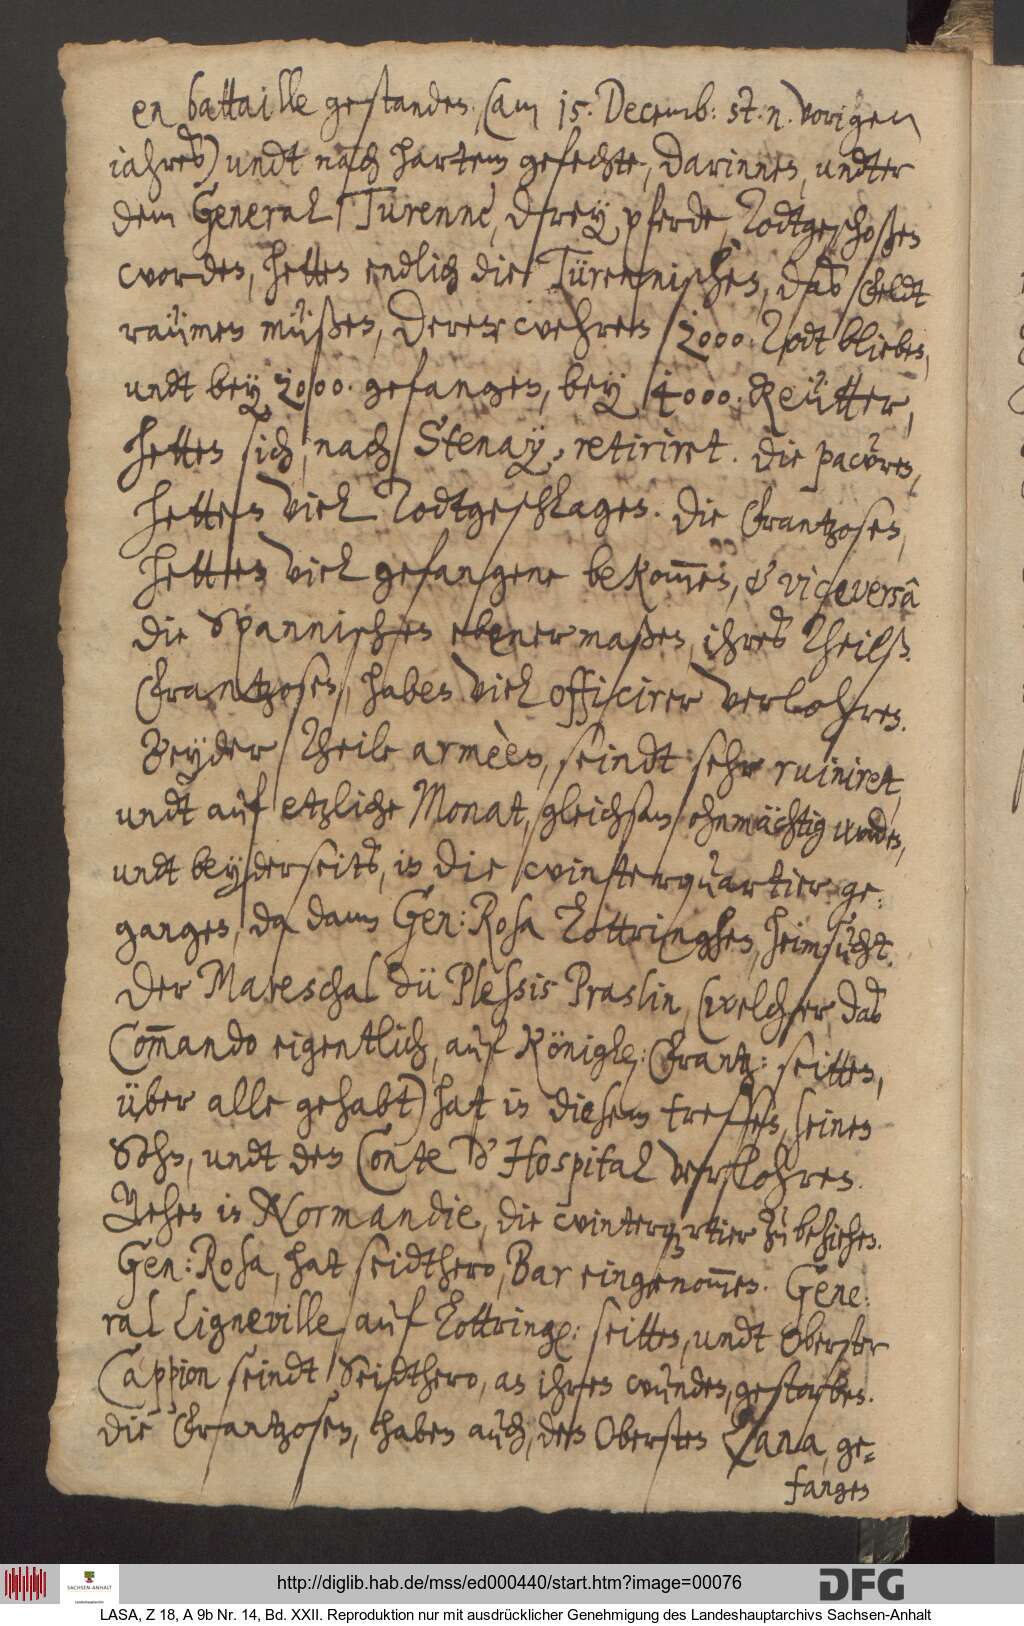 en battaille gestanden, (am 15. Decemb: st. n. vorigen
iahres) undt nach hartem gefechte, darinnen, undter
dem General Türenne, drey pferde, Todtgeschoßen
worden, hetten endlich die Türennischen, das feldt
raümen müßen, derer wehren 2000. Todt blieben,
undt bey 2000. gefangen, bey 4000. Reütter,
hetten sich, nach Stenay, retiriret. Die pawren,
hetten viel Todtgeschlagen. Die Frantzosen,
hetten viel gefangene bekom̅en, et viceversâ
die Spannischen ebener maßen, ihres Theilß.
Frantzosen, haben viel officirer verlohren.
Beyder Theile armèen, seindt sehr ruiniret,
undt auf etzliche Monat, gleichsam ohnmächtig worden,
undt beyderseits, in die winterquartier ge-
gangen, da dann Gen: Rosa Lottringhen, heimsucht.
Der Mareschal dü Plessis Praslin, (welcher das
Com̅ando eigentlich, auf Königl: Frantz: seitten,
über alle gehabt) hat in diesem treffen, seinen
Sohn, undt den Conte d'Hospital verlohren.
Gehen in Normandie, die winterqrtier zu beziehen.
Gen: Rosa, hat seidthero, Bar eingenom̅en. Gene-
ral Ligneville auf Lottring: seitten, undt Oberster
Cappion seindt seidthero, an ihren wunden, gestorben.
Die Frantzosen, haben auch, den Obersten Lana, ge-
fangen
http://diglib.hab.de/mss/ed000440/start.htm?image=00076
SACHSEN-ANHALT
DFG
LASA, Z 18, A 9b Nr. 14, Bd. XXII. Reproduktion nur mit ausdrücklicher Genehmigung des Landeshauptarchivs Sachsen-Anhalt